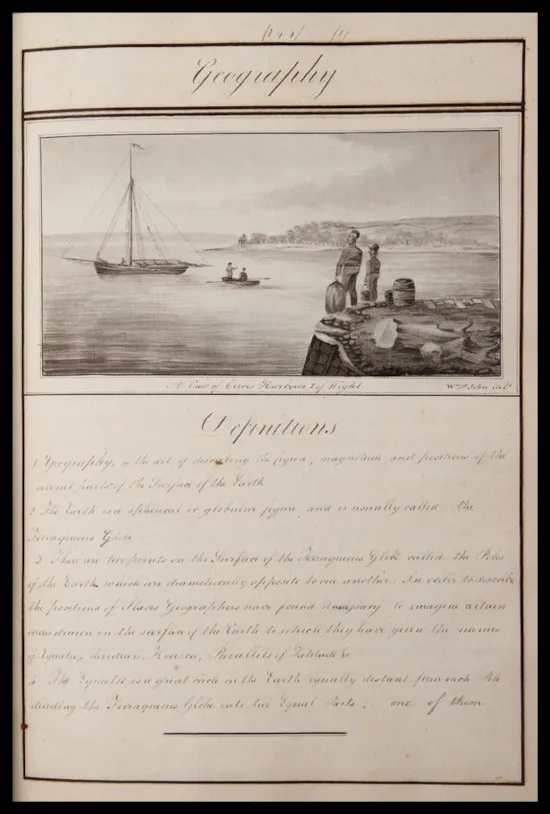 Geography
A View of Cowes Harbour I of Wight
Wm St John delt
Definitions
1 Geography, is the art of describing the figure, magnitude, and positions of the
several parts of the Surface of the Earth
2 The Earth is a spherical or globular figure and is usually called the
Terraqueous Globe
3 There are two points on the Surface of the Terraqueous Globe called the Poles
of the Earth which are diametrically opposite to one another: In order to describe
the positions of Places Geographers have found it necessary to imagin certain
drawn on the surface of the Earth to which they have given the names
of Equator, Meridian, Horizon, Parallels of Latitude &c
4 The Equator is a great circle on the Earth equally distant from each Pole
dividing the Terraqueous Globe into two Equal Parts : one of them